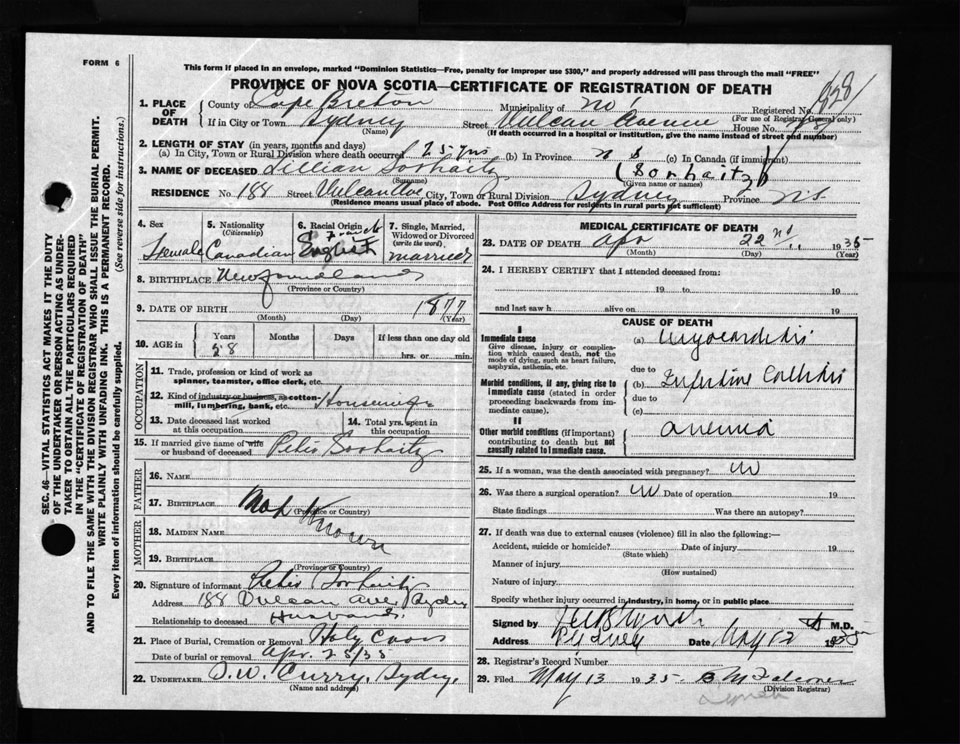 FORM 6
This form if placed in an envelope, marked "Dominion Statistics—Free, penalty for improper use $300," and properly addressed will pass through the mail "FREE"
PROVINCE OF NOVA SCOTIA—CERTIFICATE OF REGISTRATION OF DEATH
828
SEC. 46—VITAL STATISTICS ACT MAKES IT THE DUTY
OF THE UNDERTAKER OR PERSON ACTING AS UNDER-
TAKER TO OBTAIN ALL THE PARTICULARS REQUIRED
IN THE "CERTIFICATE OF REGISTRATION OF DEATH"
AND TO FILE THE SAME WITH THE DIVISION REGISTRAR WHO SHALL ISSUE THE BURIAL PERMIT.
WRITE PLAINLY WITH UNFADING INK. THIS IS A PERMANENT RECORD.
Every item of information should be carefully supplied. (See reverse side for instructions.)
1. PLACE OF DEATH
County of Cape Breton Municipality of No 1 Registered No.
(For use of Registrar General only)
If in City or Town Sydney Street Vulcan Avenue House No.
(Name) (If death occurred in a hospital or institution, give the name instead of street and number)
2. LENGTH OF STAY (in years, months and days)
(a) In City, Town or Rural Division where death occurred 25 yrs (b) In Province N S (c) In Canada (if immigrant)
3. NAME OF DECEASED Lillian
(Surname) (Given name or names)
RESIDENCE No. 188 Street Vulcan Ave City, Town or Rural Division Sydney Province N.S.
(Residence means usual place of abode. Post Office Address for residents in rural parts not sufficient)
4. Sex Female
5. Nationality (Citizenship) Canadian
6. Racial Origin French English
7. Single, Married, Widowed or Divorced (write the word) married
8. BIRTHPLACE Newfoundland
(Province or Country)
9. DATE OF BIRTH 1877
(Month) (Day) (Year)
10. AGE in Years 58 Months Days If less than one day old
hrs. or min.
OCCUPATION
11. Trade, profession or kind of work as spinner, teamster, office clerk, etc.
12. Kind of industry or business, as cotton-mill, lumbering, bank, etc. Housewife
13. Date deceased last worked at this occupation
14. Total yrs. spent in this occupation
15. If married give name of wife or husband of deceased
FATHER
16. NAME
17. BIRTHPLACE Not Known
(Province or Country)
MOTHER
18. MAIDEN NAME
19. BIRTHPLACE
(Province or Country)
20. Signature of informant
Address 188 Vulcan Ave, Sydney
Relationship to deceased Husband.
21. Place of Burial, Cremation or Removal Holy Cross
Date of burial or removal Apr. 25/35
22. UNDERTAKER S.W. Curry, Sydney.
(Name and address)
MEDICAL CERTIFICATE OF DEATH
23. DATE OF DEATH Apr 22 nd 1935
(Month) (Day) (Year)
24. I HEREBY CERTIFY that I attended deceased from:
19 to 19
and last saw h alive on 19
CAUSE OF DEATH
I
Immediate cause
Give disease, injury or complication which caused death, not the mode of dying, such as heart failure, asphyxia, asthenia, etc.
(a) Myocarditis
due to
Morbid conditions, if any, giving rise to immediate cause (stated in order proceeding backwards from immediate cause).
(b)
due to
(c)
II
Other morbid conditions (if important) contributing to death but not causally related to immediate cause.
anemia
25. If a woman, was the death associated with pregnancy?
26. Was there a surgical operation? Date of operation 19
State findings Was there an autopsy?
27. If death was due to external causes (violence) fill in also the following:—
Accident, suicide or homicide? Date of injury 19
(State which)
Manner of injury
(How sustained)
Nature of injury
Specify whether injury occurred in industry, in home, or in public place
Signed by M.D.
Address Sydney Date May 12 1935
28. Registrar's Record Number
29. Filed May 13 1935
(Division Registrar)